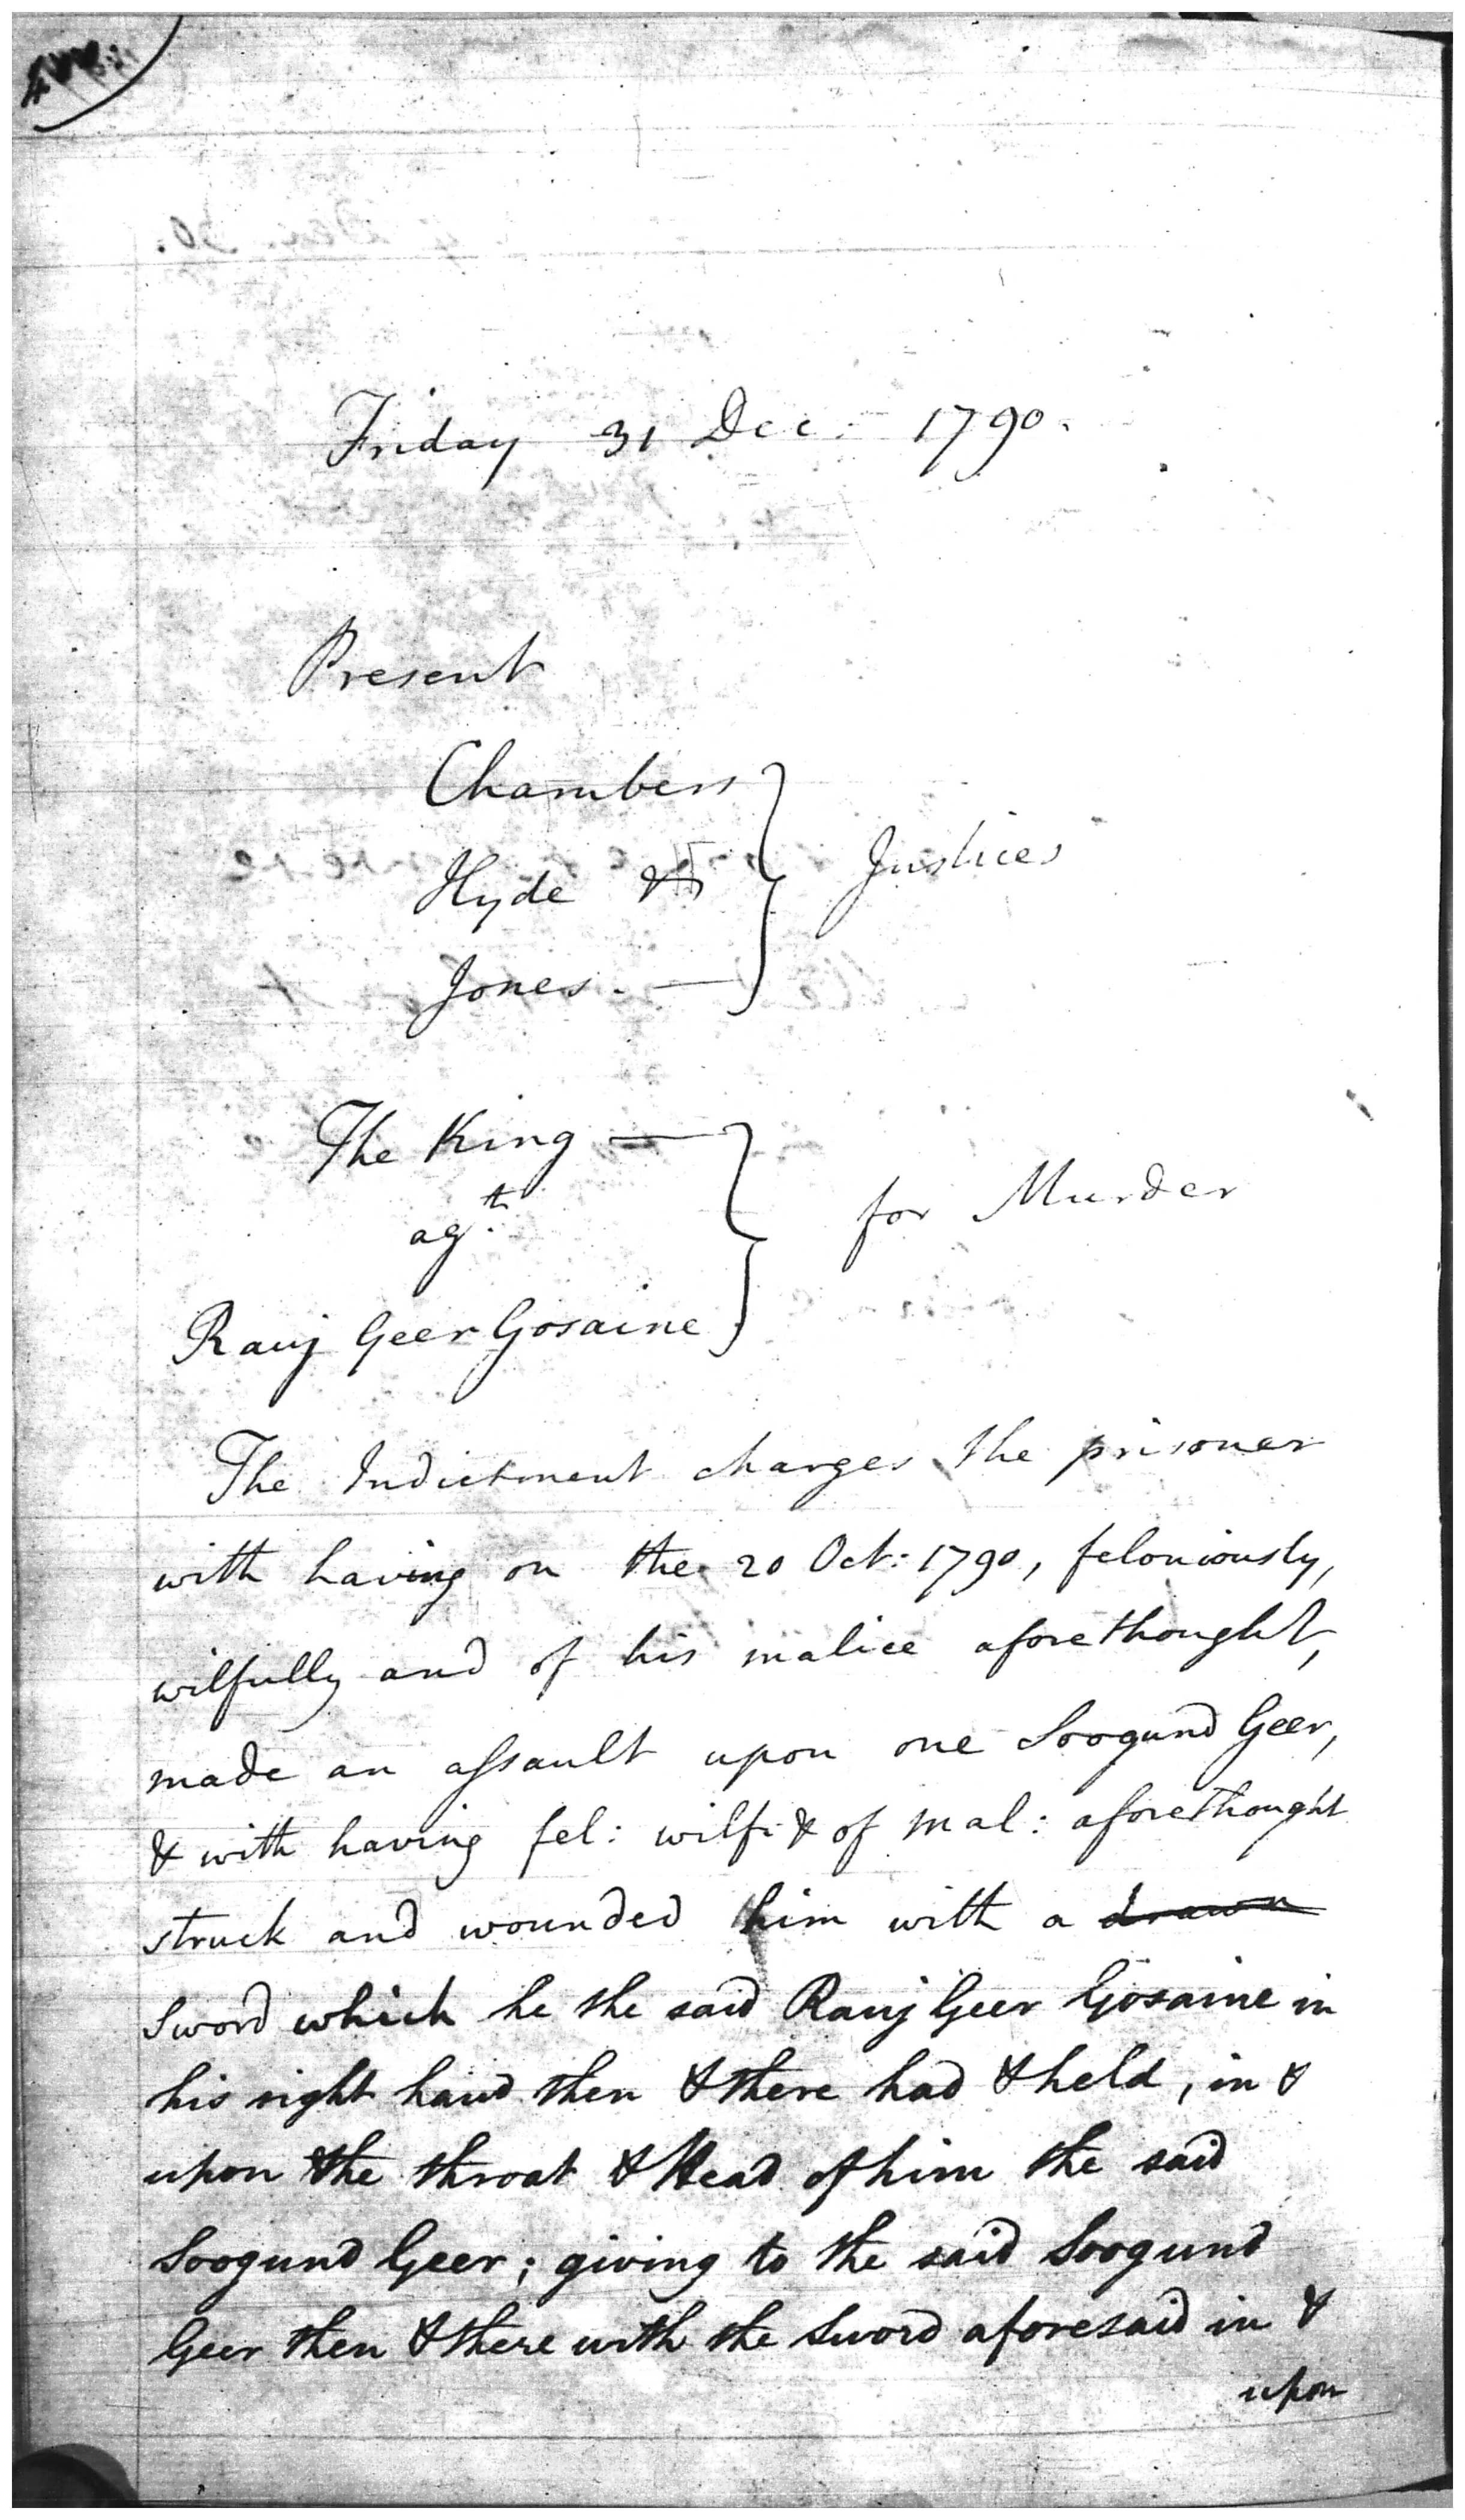 Friday 31 Dec: 1790.
Present
Chambers
Hyde & } Justices
Jones. —
The King —
agt. } for Murder
Rauj Geer Gosaine
The Indictment charges the prisoner
with having on the 20 Oct: 1790, feloniously,
wilfully and of his malice aforethought,
made an assault upon one Soogund Geer,
& with having fel: wilf: & of mal: aforethought
struck and wounded him with a drawn
Sword which he the said Rauj Geer Gosaine in
his right hand then & there had & held, in &
upon the throat & Head of him the said
Soogund Geer; giving to the said Soogund
Geer then & there with the Sword aforesaid in &
upon